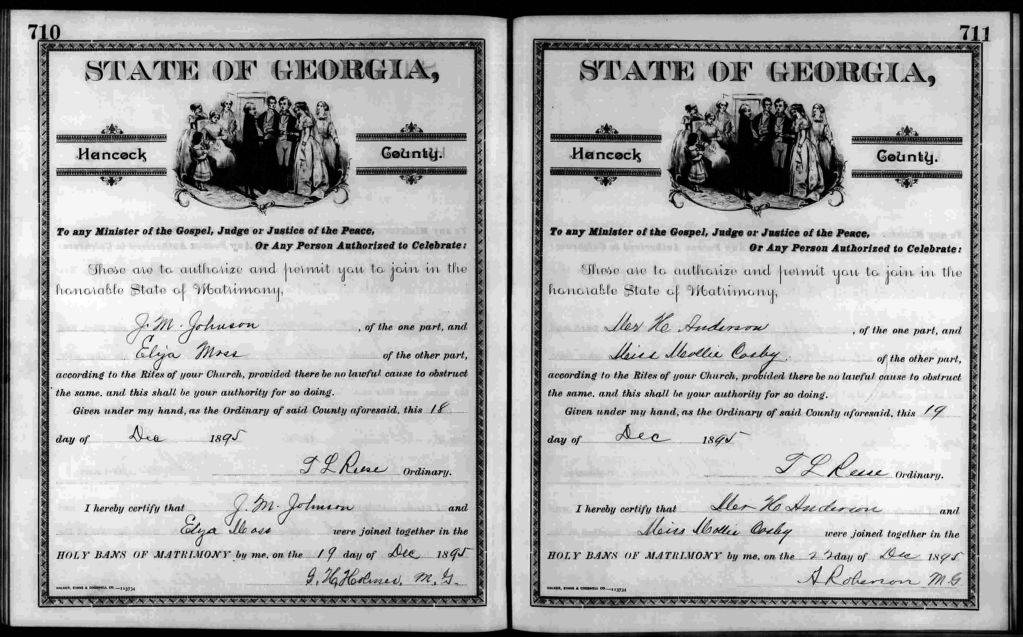 710
STATE OF GEORGIA,
Hancock County.
To any Minister of the Gospel, Judge or Justice of the Peace,
Or Any Person Authorized to Celebrate:
These are to authorize and permit you to join in the
honorable State of Matrimony,
J. M. Johnson , of the one part, and
Eliza Moss of the other part,
according to the Rites of your Church, provided there be no lawful cause to obstruct
the same, and this shall be your authority for so doing.
Given under my hand, as the Ordinary of said County aforesaid, this 18
day of Dec 1895
T L Reese Ordinary.
I hereby certify that J. M. Johnson and
Eliza Moss were joined together in the
HOLY BANS OF MATRIMONY by me, on the 19 day of Dec 1895
G. H. Holmes, M. G.
WALKER, EVANS & COGSWELL CO.—113734
711
STATE OF GEORGIA,
Hancock County.
To any Minister of the Gospel, Judge or Justice of the Peace,
Or Any Person Authorized to Celebrate:
These are to authorize and permit you to join in the
honorable State of Matrimony,
H. Anderson , of the one part, and
Miss Mollie Cosby of the other part,
according to the Rites of your Church, provided there be no lawful cause to obstruct
the same, and this shall be your authority for so doing.
Given under my hand, as the Ordinary of said County aforesaid, this 19
day of Dec 1895
T L Reese Ordinary.
I hereby certify that H Anderson and
Miss Mollie Cosby were joined together in the
HOLY BANS OF MATRIMONY by me, on the 22 day of Dec 1895
A Roberson M G
WALKER, EVANS & COGSWELL CO.—113734